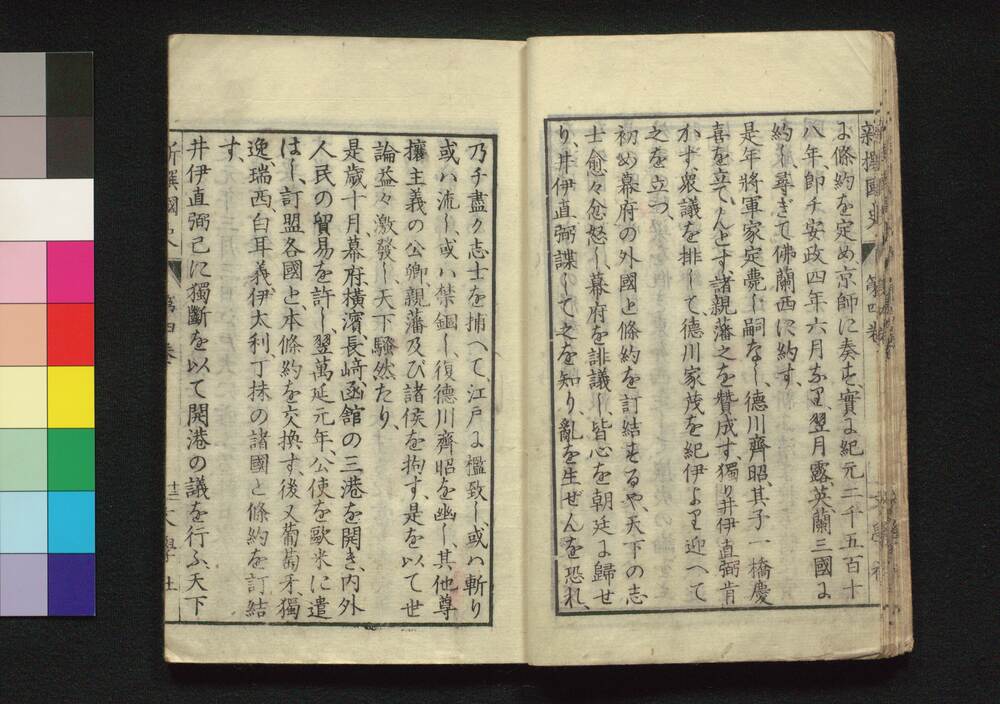 新撰國史 第四卷 文學社
に條約を定め京師に奏す、實に紀元二千五百十
八年即チ安政四年六月なり、翌月露英蘭三國に
約し尋ぎて佛蘭西に約す、
是年將軍家定薨じ嗣なし、德川齊昭、其子一橋慶
喜を立てんとす、諸親藩之を贊成す、獨り井伊直弼肯
かず衆議を排して德川家茂を紀伊より迎へて
之を立つ、
初め幕府の外國と條約を訂結するや、天下の志
士愈々忿怒し、幕府を誹議し、皆心を朝廷に歸せ
り、井伊直弼諜して之を知り、亂を生ぜんを恐れ、
乃チ盡ク志士を捕へて、江戸に檻致し、或ハ斬り
或ハ流し、或ハ禁錮し、復德川齊昭を幽し、其他尊
攘主義の公卿、親藩及び諸侯を拘す、是を以て世
論益々激發し、天下騷然たり、
是歲十月幕府、橫濱、長崎、函館の三港を開き、内外
人民の貿易を許し、翌萬延元年、公使を歐米に遣
はし、訂盟各國と本條約を交換す、後又葡萄牙獨
逸、瑞西、白耳義伊太利、丁抹の諸國と條約を訂結
す、
井伊直弼已に獨斷を以て開港の議を行ふ、天下
新撰國史 第四卷 十二 文學社